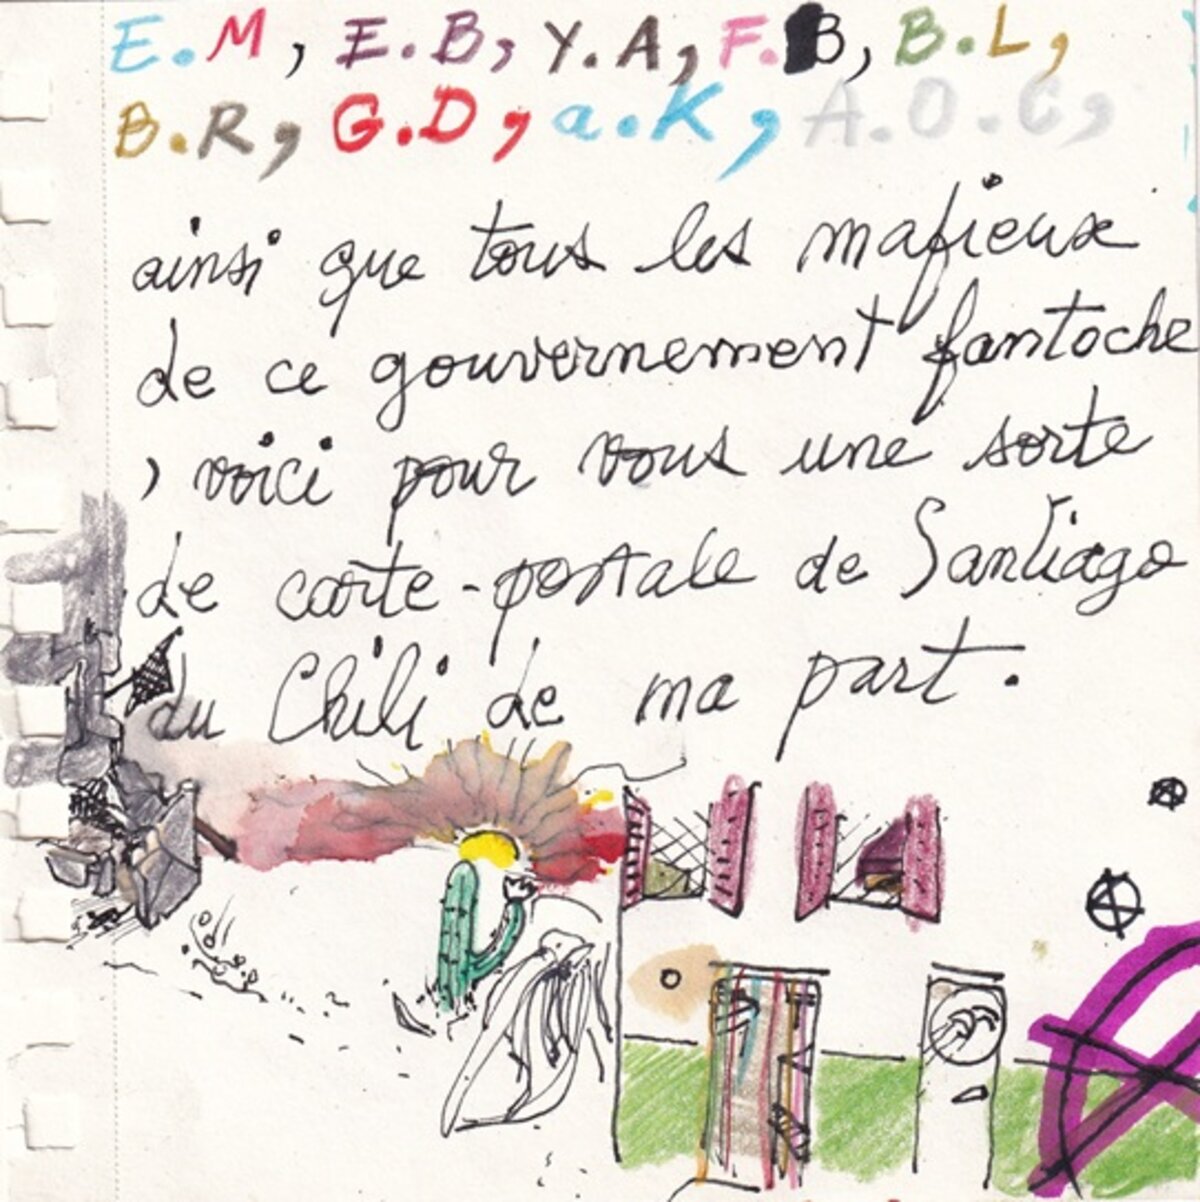 E.M, E.B, Y.A, F.B, B.L,
B.R, G.D, a.K, A.O.C,
ainsi que tous les mafieux
de ce gouvernement fantoche
, voici pour vous une sorte
de carte-postale de Santiago
du Chili de ma part.